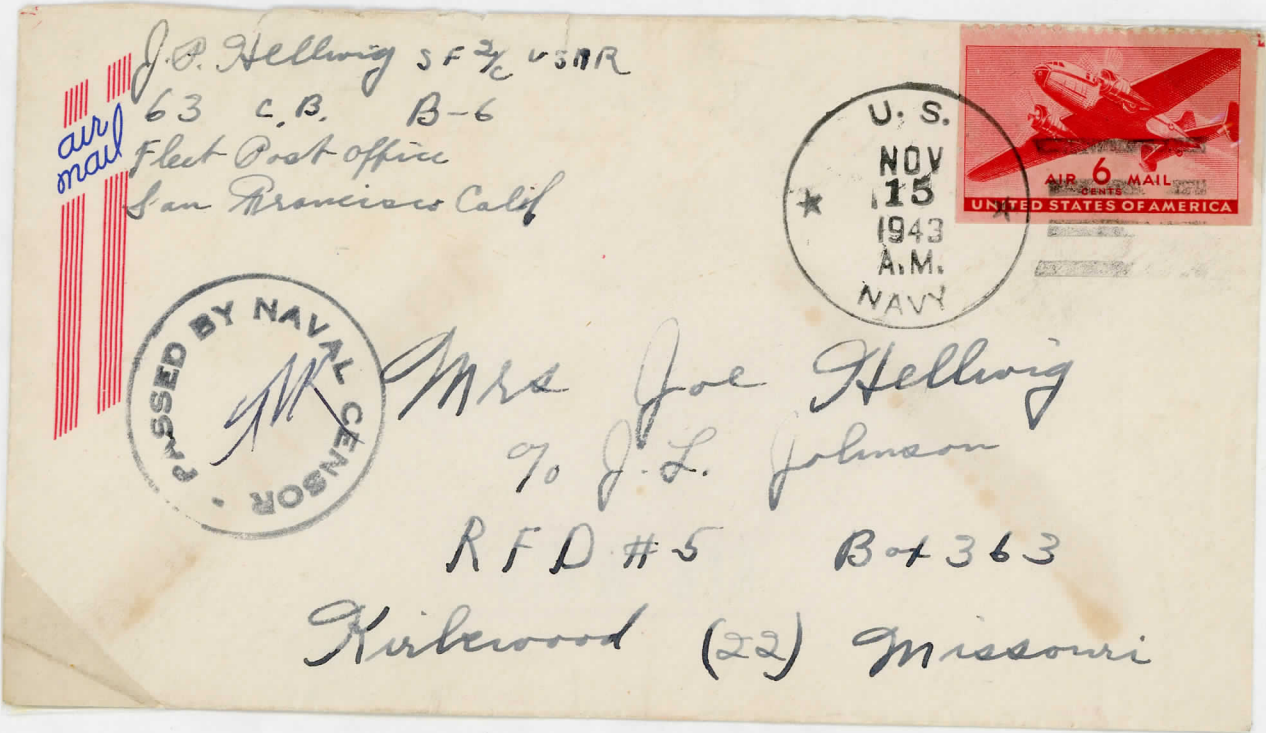 J.P. Hellwig SF 2/c USNR
63 C.B. B-6
Fleet Post Office
San Francisco Calif
air
mail
U. S.
NOV
15
1943
A.M.
NAVY
AIR 6 MAIL
CENTS
UNITED STATES OF AMERICA
PASSED BY NAVAL CENSOR
Mrs Joe Hellwig
c/o J. L. Johnson
RFD #5 Box 363
Kirkwood (22) Missouri